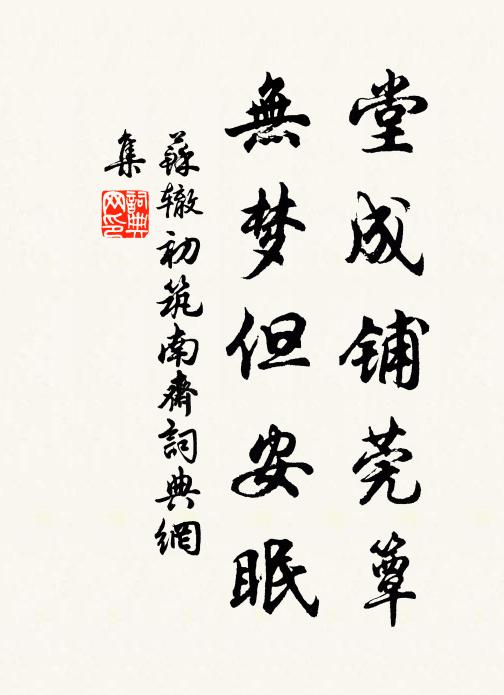 堂成铺莞簟
無梦但安眠
蘇辙初筑南齋詞典網
集
詞典网印